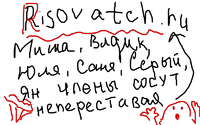 Risovatch.ru
Миша, Владик,
Юля, Саня, Серый,
Ян члены сосут
непереставая